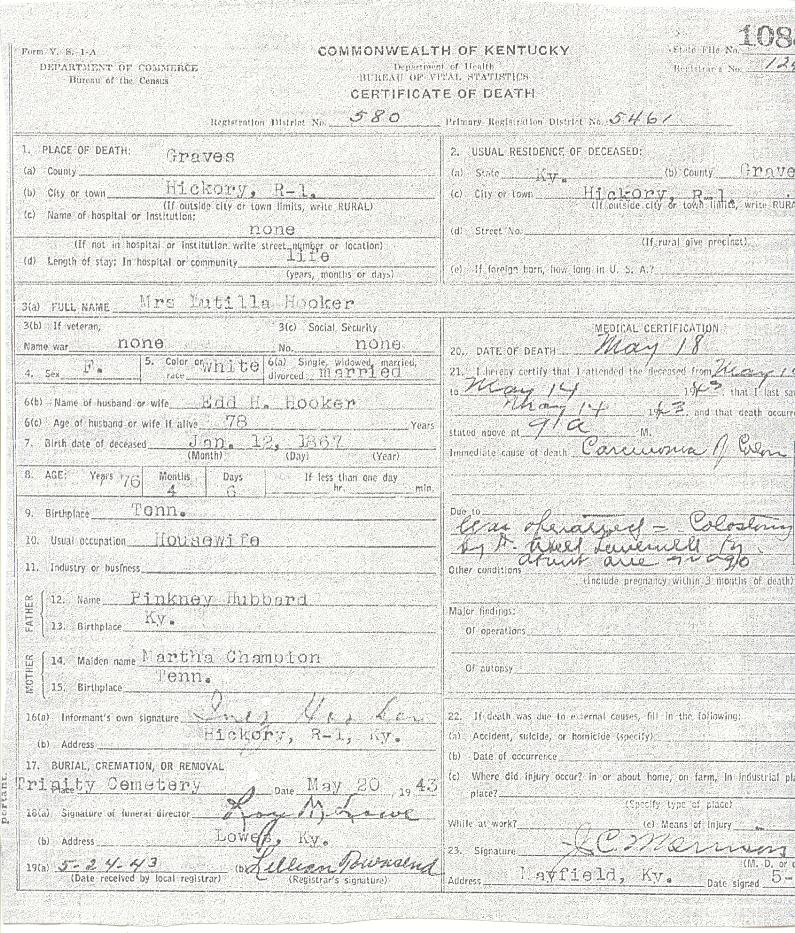 108
Form V. S. 1-A
DEPARTMENT OF COMMERCE
Bureau of the Census
COMMONWEALTH OF KENTUCKY
Department of Health
BUREAU OF VITAL STATISTICS
CERTIFICATE OF DEATH
State File No.
Registrar's No. 12
Registration District No. 580 Primary Registration District No. 5461
1. PLACE OF DEATH:
(a) County Graves
(b) City or town Hickory, R-1.
(If outside city or town limits, write RURAL)
(c) Name of hospital or institution:
none
(If not in hospital or institution write street number or location)
(d) Length of stay: In hospital or community life
(years, months or days)
2. USUAL RESIDENCE OF DECEASED:
(a) State Ky. (b) County Grave
(c) City or town Hickory, R-1.
(If outside city or town limits, write RURA
(d) Street No.
(If rural give precinct)
(e) If foreign born, how long in U. S. A.?
3(a) FULL NAME Mrs Lutilla Hooker
3(b) If veteran,
Name war none
3(c) Social Security
No. none
4. Sex F. 5. Color or race white 6(a) Single, widowed, married, divorced married
6(b) Name of husband or wife Edd H. Hooker
6(c) Age of husband or wife if alive 78 Years
7. Birth date of deceased Jan. 12, 1867
(Month) (Day) (Year)
8. AGE: Years 76 Months 4 Days 6 If less than one day
hr. min.
9. Birthplace Tenn.
10. Usual occupation Housewife
11. Industry or business
FATHER
12. Name Pinkney Hubbard
13. Birthplace Ky.
MOTHER
14. Maiden name Martha Champion
15. Birthplace Tenn.
16(a) Informant's own signature
(b) Address Hickory, R-1, Ky.
17. BURIAL, CREMATION, OR REMOVAL
Place Trinity Cemetery Date May 20, 1943
18(a) Signature of funeral director Roy M Lowe
(b) Address Lowes, Ky.
19(a) 5-24-43 (b) Lillian Townsend
(Date received by local registrar) (Registrar's signature)
portant.
MEDICAL CERTIFICATION
20. DATE OF DEATH May 18
21. I hereby certify that I attended the deceased from May 1
to May 14 1943, that I last sa
May 14 1943, and that death occurre
stated above at 9 a M.
Immediate cause of death Carcinoma of Colon
Due to
Was operated = Colostomy
by
Other conditions about one
(Include pregnancy within 3 months of death)
Major findings:
Of operations
Of autopsy
22. If death was due to external causes, fill in the following:
(a) Accident, suicide, or homicide (specify)
(b) Date of occurrence
(c) Where did injury occur? in or about home, on farm, in industrial pla
place?
(Specify type of place)
While at work? (e) Means of injury
23. Signature J C Morrison
(M. D. or o
Address Mayfield, Ky. Date signed 5-